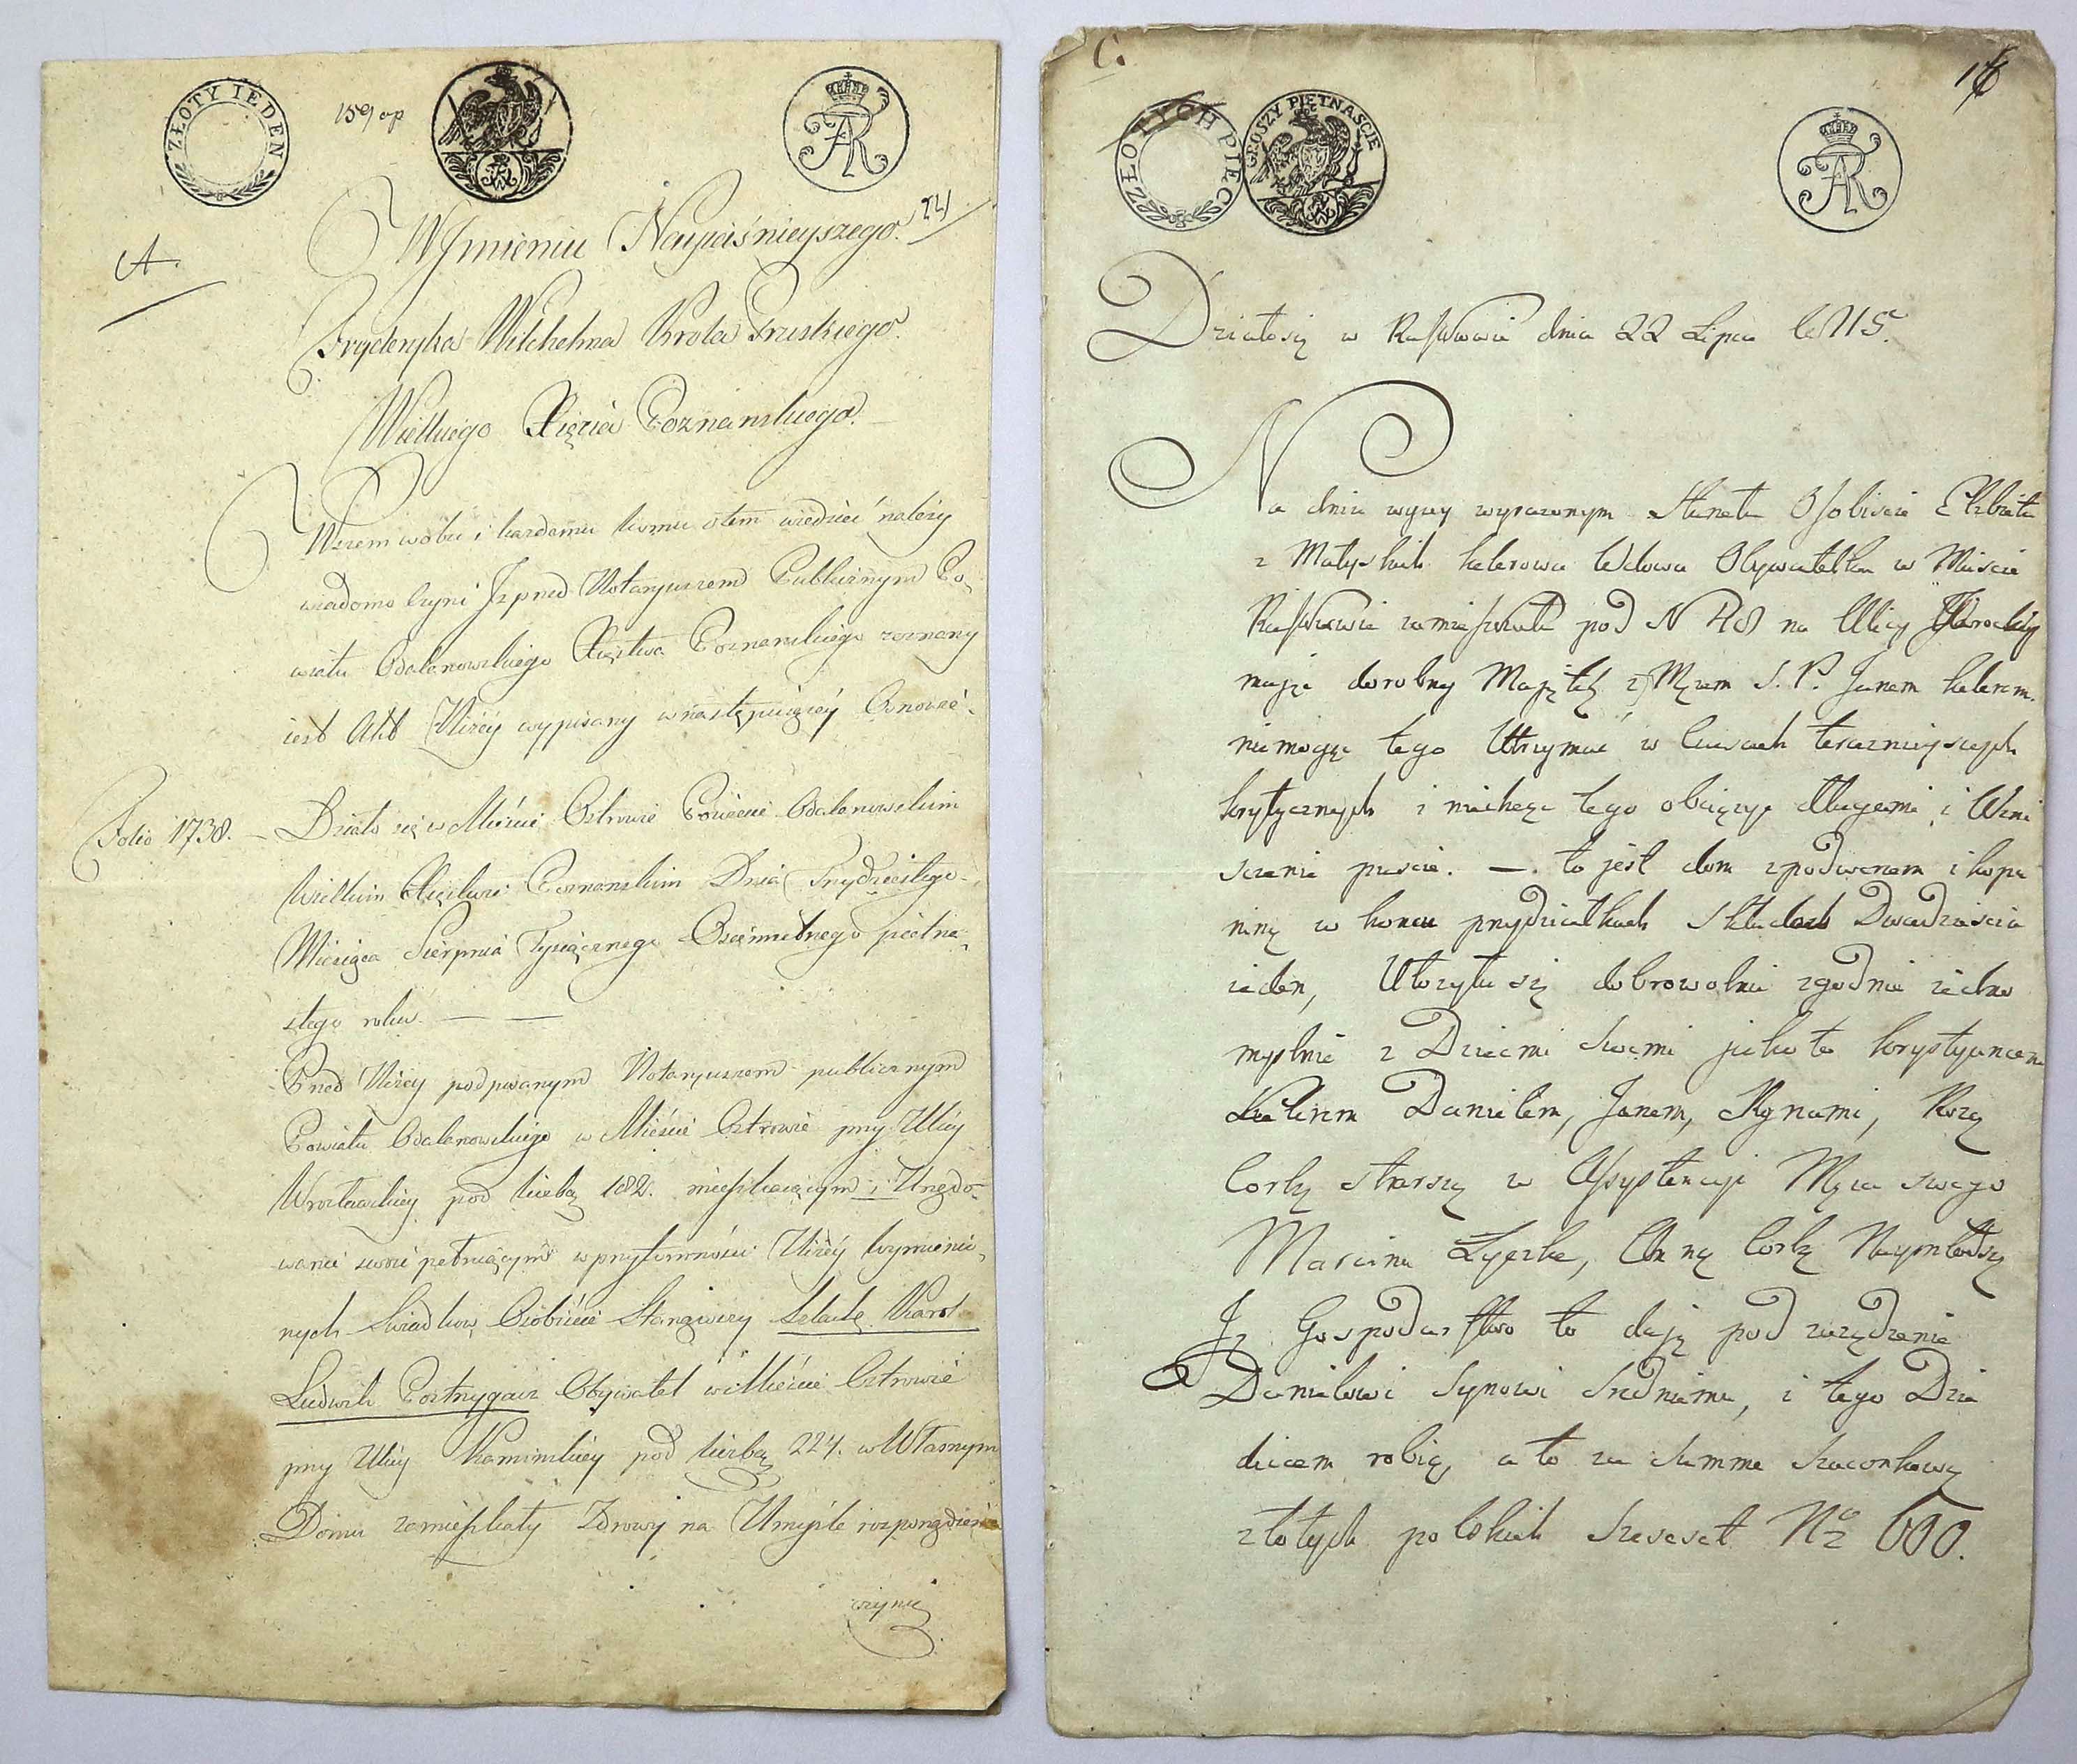 ZŁOTY IEDEN
A.
W Jmieniu Nayiaśnieyszego
Fryderyka Wilhelma Krola Pruskiego
Wielkiego Xięcia Poznanskiego.
Wszem wobec i każdemu komu otem wiedzieć należy
wiadomo czyni Iż przed Notaryuszem Publicznym Po-
wiatu Odalanowskiego Xięstwa Poznanskiego zeznany
iest Akt Niżey wypisany w następuiącéy Osnowie.
Folio 1738. – Działo się w Mieście Ostrowie Powiecie Odalanowskim
Wielkim Xięstwie Poznanskim Dnia Trzydziestego
Miesiąca Sierpnia Tysiącznego Osiemsetnego piętna-
stego roku. — —
Przed Niżey podpisanym Notaryuszem publicznym
Powiatu Odalanowskiego w Mieście Ostrowie przy Ulicy
Wrocławskiey pod liczbą 182. mieszkaiącym i Urzędo-
wanie swoie pełniącym w przytomności Niżéy wymienio-
nych Swiadkow Osobiście Stanąwszy Karol
Ludwik Obywatel w Mieście Ostrowie
przy Ulicy Kaminskiey pod liczbą 224. w Własnym
Domu zamieszkały Zdrowy na Umyśle rozporządzenie
czyniąc
C.
ZŁOTYCH PIĘC
GROSZY PIĘTNAŚCIE
Działosię w Raszkowie dnia 22 Lipca 1815.
Na dniu wyzey wyrazonym Staneła Osobiscie Elzbieta
z Matyskich Kelerowa Wdowa Obywatelka w Miescie
Raszkowie zamieszkała pod N 48 na Ulicy
maiąc dorobny Maiątek z Męzem S. P. Janem Kelerem.
niemogąc tego Utrzymać w Czasach teraznieyszych
krytycznych i niechcąc tego obciązyc długami i Wzni
szczenie puscic. —. to jest dom z podworzem i kopa
ninę w koncu przydziałkach Składach Dwadziescia
ieden, Ułozyła się dobrowolnie zgodnie iedno
myslnie z Dziecmi Swemi jako to Krystyanem
Kelerem Danielem, Janem, Rozą
Corką starszą w Assystencyi Męza swego
Marcina Łyczke, Anną Corką Naymłodszą
Iz Gospodarstwo to daią pod zarządzenie
Danielowi Synowi Sredniemu, i tego Dzie
dzicem robią, a to za Summe Szacunkową
złotych polskich Szescset Nro 600.